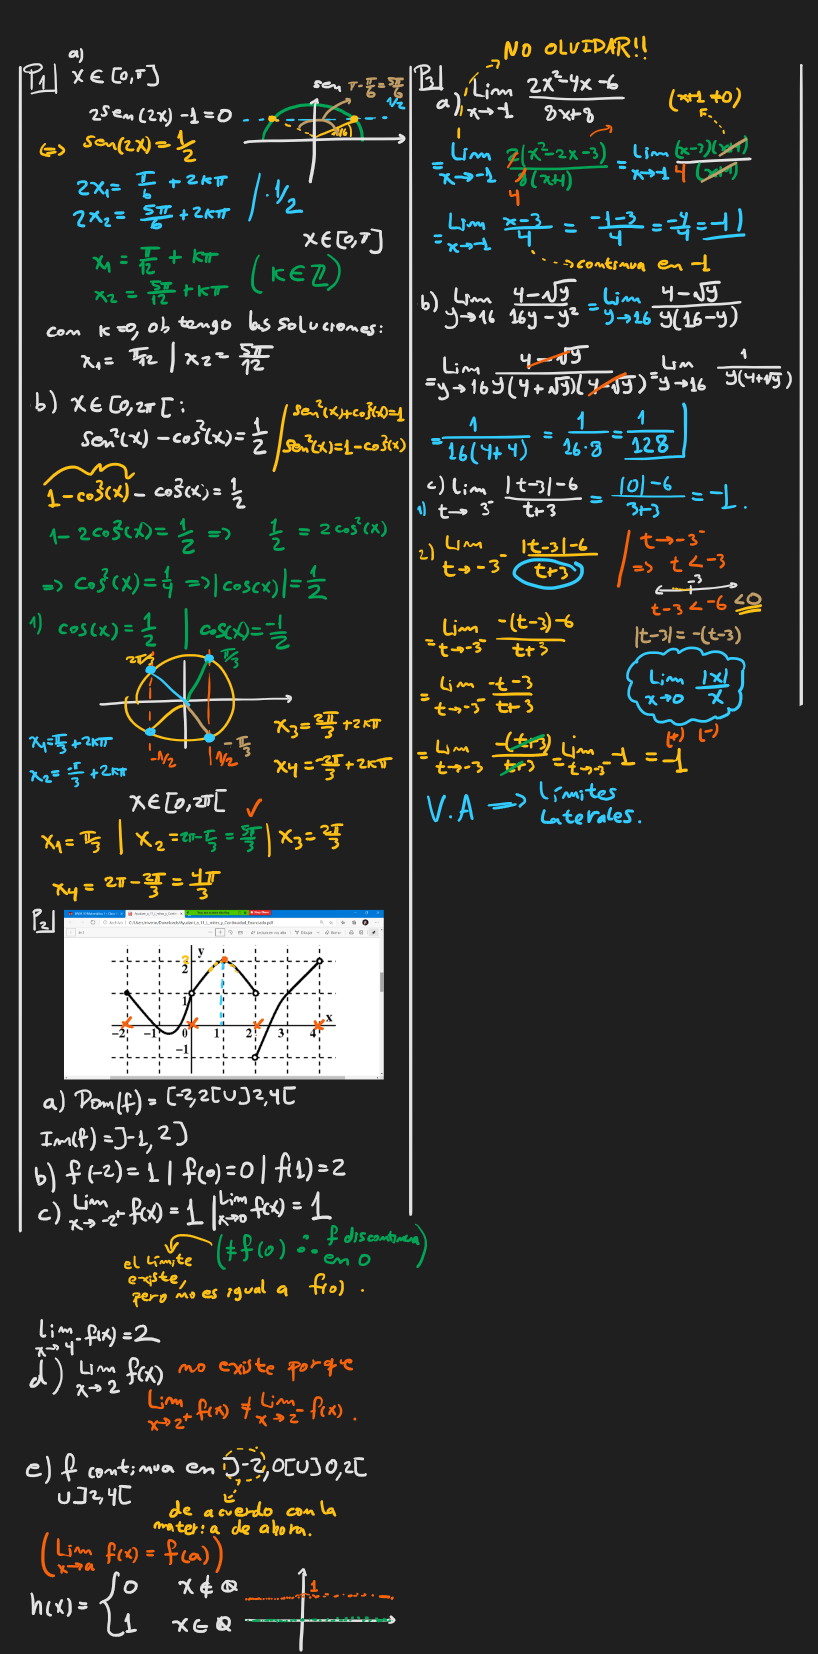 P1] a)
x ∈ [0,π]
2sen(2x) -1 = 0
<=> sen(2x) = 1/2
sen π - π/6 = 5π/6
1/2
π/6
2x₁ = π/6 + 2kπ
2x₂ = 5π/6 + 2kπ / · 1/2
x ∈ [0,π]
x₁ = π/12 + kπ
x₂ = 5π/12 + kπ (k ∈ ℤ)
con k=0, obtengo las soluciones:
x₁ = π/12 | x₂ = 5π/12
b) x ∈ [0,2π[ :
sen²(x) - cos²(x) = 1/2 / sen²(x)+cos²(x)=1
sen²(x) = 1-cos²(x)
1-cos²(x) - cos²(x) = 1/2
1-2cos²(x) = 1/2 => 1/2 = 2cos²(x)
=> cos²(x) = 1/4 => |cos(x)| = 1/2
1) cos(x) = 1/2 | cos(x) = -1/2
2π/3 π/3
-π/3
-1/2 1/2
x₁ = π/3 + 2kπ
x₂ = -π/3 + 2kπ
x₃ = 2π/3 + 2kπ
x₄ = -2π/3 + 2kπ
x ∈ [0,2π[
x₁ = π/3 | x₂ = 2π - π/3 = 5π/3 | x₃ = 2π/3
x₄ = 2π - 2π/3 = 4π/3
P2]
y
2
2
1
-2 -1 0 1 2 3 4 x
-1
a) Dom(f) = [-2,2[ U ]2,4[
Im(f) = ]-1, 2]
b) f(-2) = 1 | f(0) = 0 | f(1) = 2
c) Lim x→-2⁺ f(x) = 1 | Lim x→0 f(x) = 1
(≠ f(0) ∴ f discontinua en 0)
el límite
existe,
pero no es igual a f(0).
Lim x→4⁻ f(x) = 2
d) Lim x→2 f(x) no existe porque
Lim x→2⁺ f(x) ≠ Lim x→2⁻ f(x).
e) f continua en ]-2,0[ U ]0,2[
U ]2,4[
de acuerdo con la
materia de ahora.
(Lim x→a f(x) = f(a))
h(x) = { 0 x ∉ ℚ
1 x ∈ ℚ
1
P3]
NO OLVIDAR!!
a) Lim x→-1 2x²-4x-6 / 8x+8
(x+1 ≠ 0)
= Lim x→-1 2(x²-2x-3) / 8(x+1) = Lim x→-1 (x-3)(x+1) / 4 (x+1)
4
= Lim x→-1 x-3 / 4 = -1-3 / 4 = -4/4 = -1
continua en -1
b) Lim y→16 4-√y / 16y-y² = Lim y→16 4-√y / y(16-y)
= Lim y→16 4-√y / y(4+√y)(4-√y) = Lim y→16 1 / y(4+√y)
= 1 / 16(4+4) = 1 / 16·8 = 1 / 128
c) Lim t→3⁻ |t-3|-6 / t+3 = |0|-6 / 3+3 = -1.
1)
2) Lim t→-3⁻ |t-3|-6 / t+3
t→-3⁻
=> t < -3
-3
t-3 < -6 < 0
= Lim t→-3⁻ -(t-3)-6 / t+3
|t-3| = -(t-3)
= Lim t→-3⁻ -t-3 / t+3
Lim x→0 |x| / x
(+) (-)
= Lim t→-3 -(t+3) / t+3 = Lim t→-3⁻ -1 = -1
V.A => Límites
Laterales.